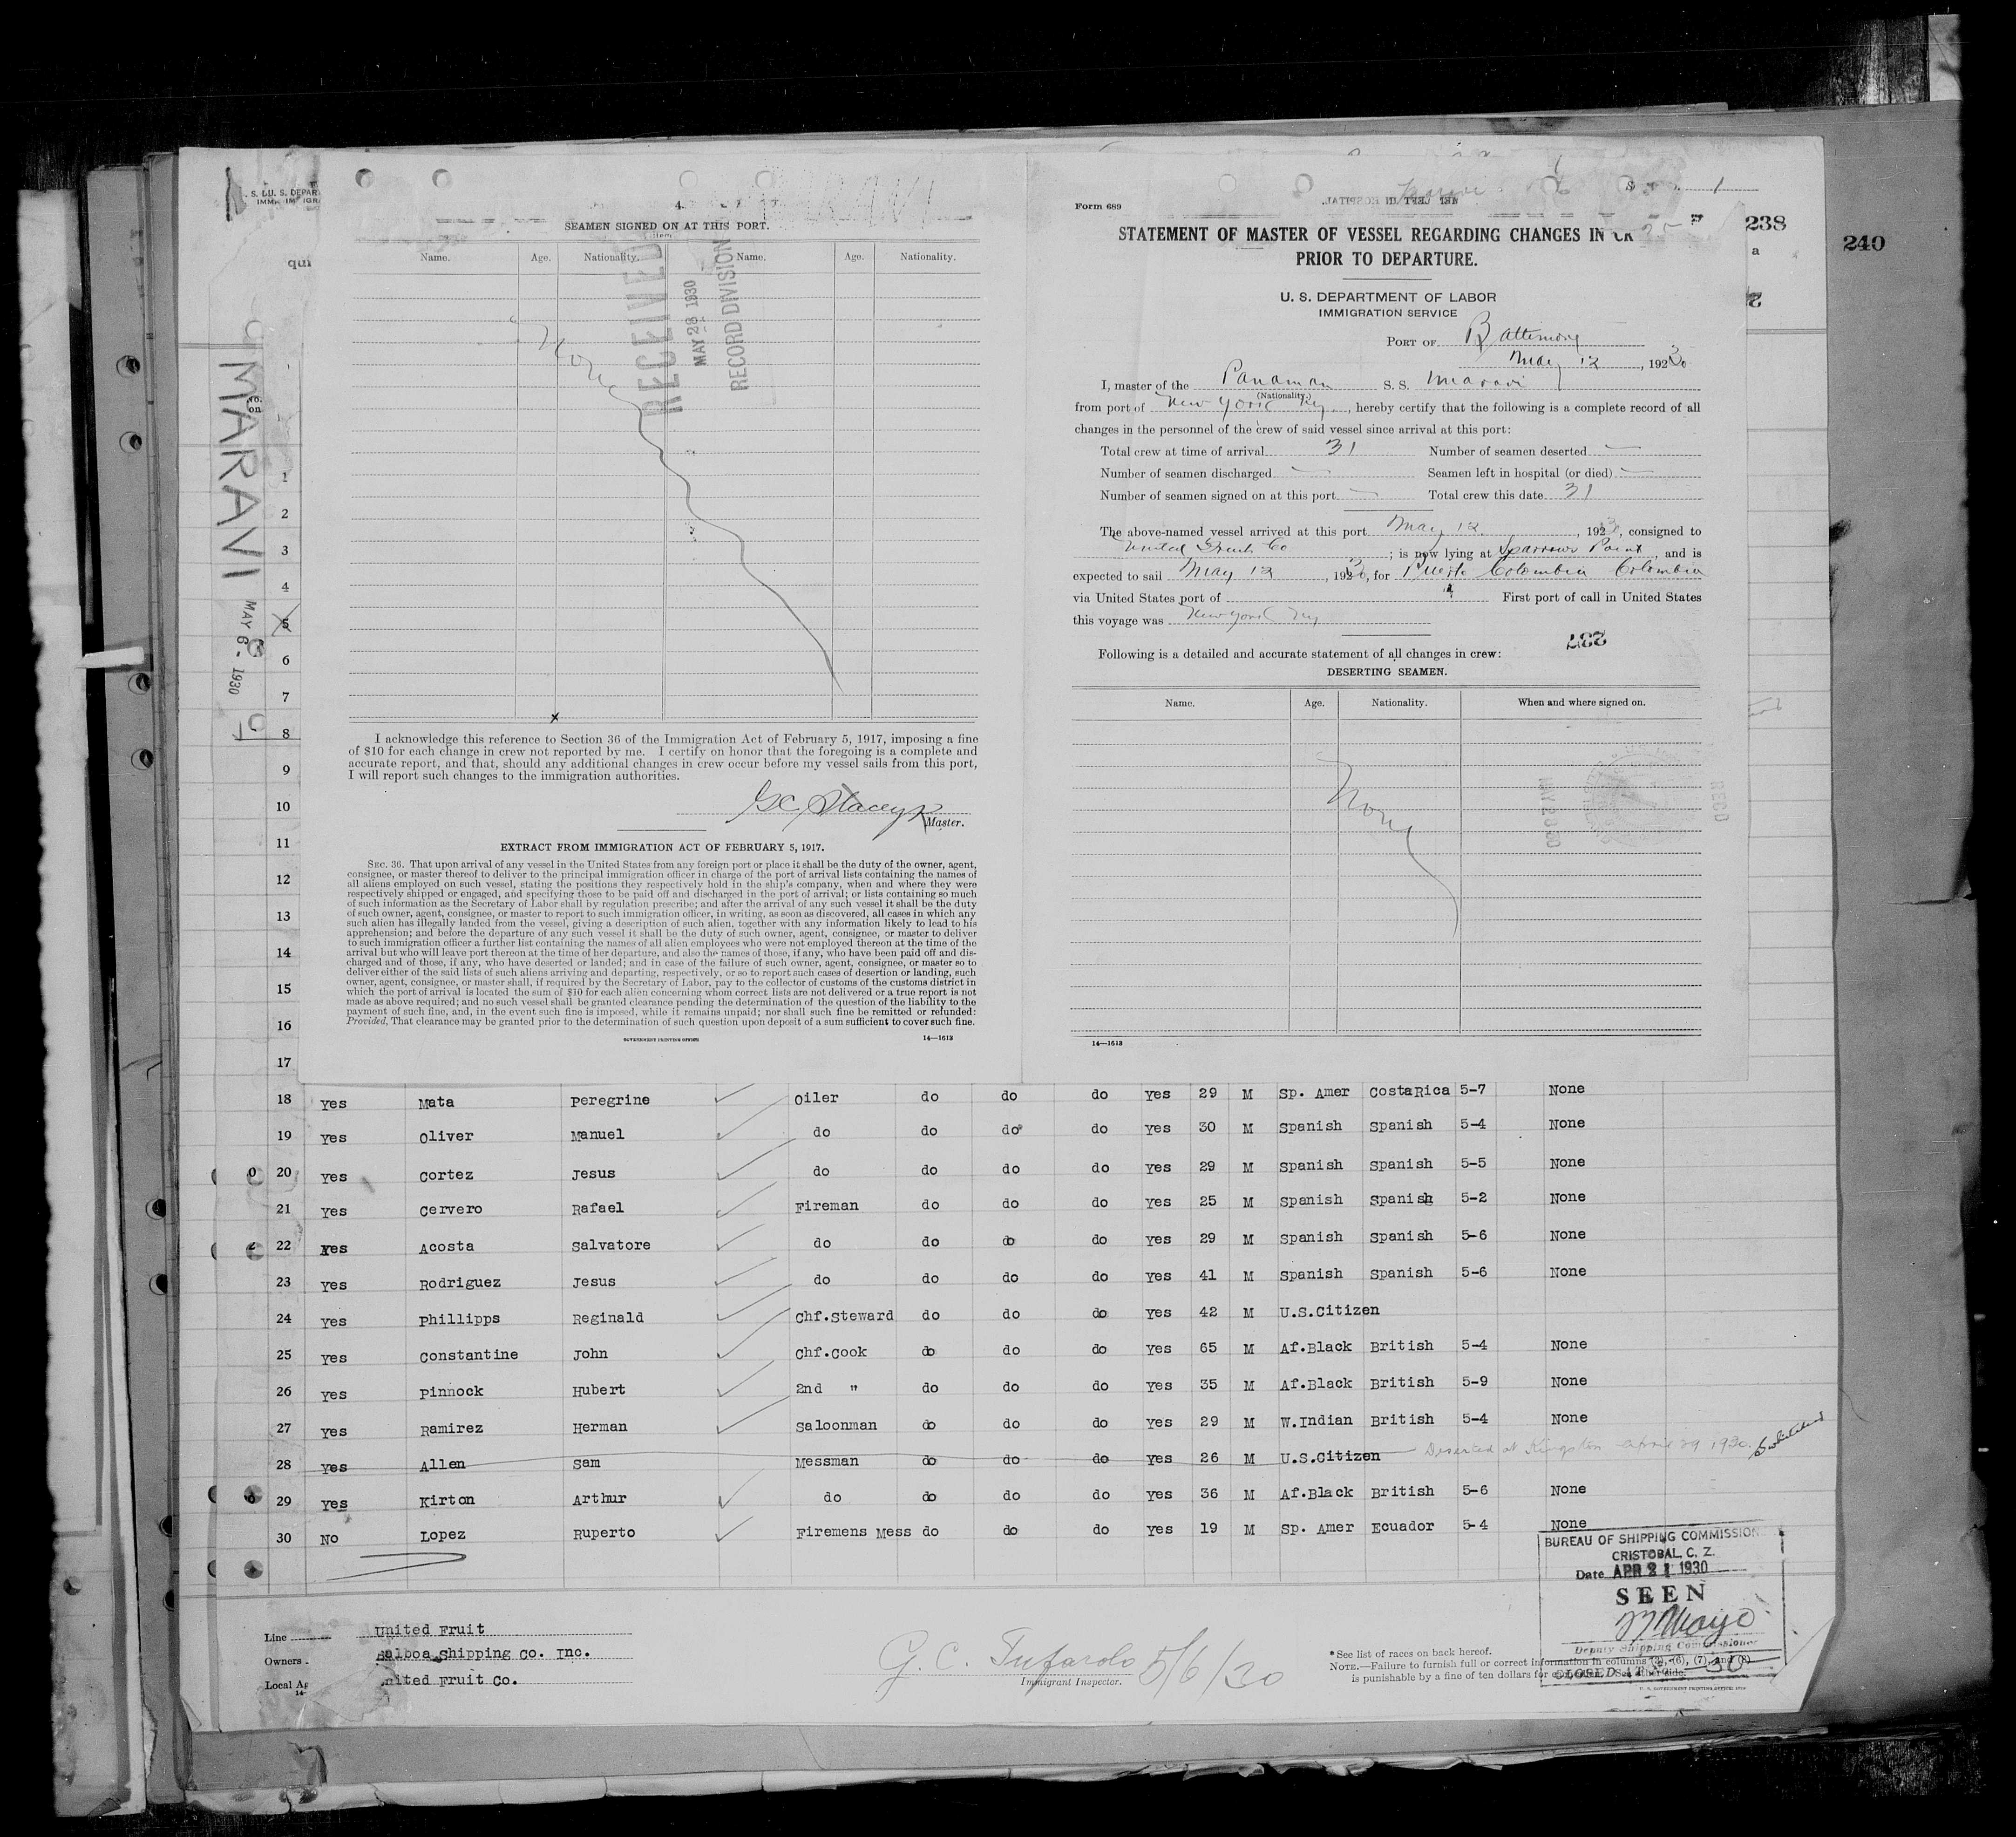 S. U. S. DEPAR
MARAVI
MAY 6 - 1930
SEAMEN SIGNED ON AT THIS PORT.
Name. Age. Nationality. Name. Age. Nationality.
None
RECEIVED
MAY 28 1930
RECORD DIVISION
I acknowledge this reference to Section 36 of the Immigration Act of February 5, 1917, imposing a fine
of $10 for each change in crew not reported by me. I certify on honor that the foregoing is a complete and
accurate report, and that, should any additional changes in crew occur before my vessel sails from this port,
I will report such changes to the immigration authorities.
G C Stacey
Master.
EXTRACT FROM IMMIGRATION ACT OF FEBRUARY 5, 1917.
SEC. 36. That upon arrival of any vessel in the United States from any foreign port or place it shall be the duty of the owner, agent,
consignee, or master thereof to deliver to the principal immigration officer in charge of the port of arrival lists containing the names of
all aliens employed on such vessel, stating the positions they respectively hold in the ship's company, when and where they were
respectively shipped or engaged, and specifying those to be paid off and discharged in the port of arrival; or lists containing so much
of such information as the Secretary of Labor shall by regulation prescribe; and after the arrival of any such vessel it shall be the duty
of such owner, agent, consignee, or master to report to such immigration officer, in writing, as soon as discovered, all cases in which any
such alien has illegally landed from the vessel, giving a description of such alien, together with any information likely to lead to his
apprehension; and before the departure of any such vessel it shall be the duty of such owner, agent, consignee, or master to deliver
to such immigration officer a further list containing the names of all alien employees who were not employed thereon at the time of the
arrival but who will leave port thereon at the time of her departure, and also the names of those, if any, who have been paid off and dis-
charged and of those, if any, who have deserted or landed; and in case of the failure of such owner, agent, consignee, or master so to
deliver either of the said lists of such aliens arriving and departing, respectively, or so to report such cases of desertion or landing, such
owner, agent, consignee, or master shall, if required by the Secretary of Labor, pay to the collector of customs of the customs district in
which the port of arrival is located the sum of $10 for each alien concerning whom correct lists are not delivered or a true report is not
made as above required; and no such vessel shall be granted clearance pending the determination of the question of the liability to the
payment of such fine, and, in the event such fine is imposed, while it remains unpaid; nor shall such fine be remitted or refunded:
Provided, That clearance may be granted prior to the determination of such question upon deposit of a sum sufficient to cover such fine.
GOVERNMENT PRINTING OFFICE 14—1613
Form 689
STATEMENT OF MASTER OF VESSEL REGARDING CHANGES IN CR
PRIOR TO DEPARTURE.
238
240
U. S. DEPARTMENT OF LABOR
IMMIGRATION SERVICE
PORT OF Baltimore
May 12, 1930
I, master of the Panaman S. S. Maravi
(Nationality.)
from port of New York Ny, hereby certify that the following is a complete record of all
changes in the personnel of the crew of said vessel since arrival at this port:
Total crew at time of arrival 31 Number of seamen deserted —
Number of seamen discharged — Seamen left in hospital (or died) —
Number of seamen signed on at this port — Total crew this date 31
The above-named vessel arrived at this port May 12, 1930, consigned to
United Fruit Co; is now lying at Sparrows Point, and is
expected to sail May 12, 1930, for Puerto Colombia Colombia
via United States port of First port of call in United States
this voyage was New York Ny
237
Following is a detailed and accurate statement of all changes in crew:
DESERTING SEAMEN.
Name. Age. Nationality. When and where signed on.
None
14—1613
1
2
3
4
5
6
7
8
9
10
11
12
13
14
15
16
17
18 Yes Mata Peregrine Oiler do do do Yes 29 M Sp. Amer CostaRica 5-7 None
19 Yes Oliver Manuel do do do do Yes 30 M Spanish Spanish 5-4 None
20 Yes Cortez Jesus do do do do Yes 29 M Spanish Spanish 5-5 None
21 Yes Cervero Rafael Fireman do do do Yes 25 M Spanish Spanish 5-2 None
22 Yes Acosta Salvatore do do do do Yes 29 M Spanish Spanish 5-6 None
23 Yes Rodriguez Jesus do do do do Yes 41 M Spanish Spanish 5-6 None
24 Yes Phillipps Reginald Chf.Steward do do do Yes 42 M U.S.Citizen
25 Yes Constantine John Chf.Cook do do do Yes 65 M Af.Black British 5-4 None
26 Yes Pinnock Hubert 2nd " do do do Yes 35 M Af.Black British 5-9 None
27 Yes Ramirez Herman Saloonman do do do Yes 29 M W.Indian British 5-4 None
28 Yes Allen Sam Messman do do do Yes 26 M U.S.Citizen Deserted at Kingston April 29 1930.
29 Yes Kirton Arthur do do do do Yes 36 M Af.Black British 5-6 None
30 No Lopez Ruperto Firemens Mess do do do Yes 19 M Sp. Amer Ecuador 5-4 None
BUREAU OF SHIPPING COMMISSION
CRISTOBAL, C. Z.
Date APR 21 1930
SEEN
Deputy Shipping Commissioner
Line United Fruit
Owners Balboa Shipping Co. Inc.
Local Ag United Fruit Co.
G. C. Tufarolo 5/6/30
Immigrant Inspector.
* See list of races on back hereof.
NOTE.—Failure to furnish full or correct information in columns (3), (6), (7), and (8)
is punishable by a fine of ten dollars for each alien. See other side.